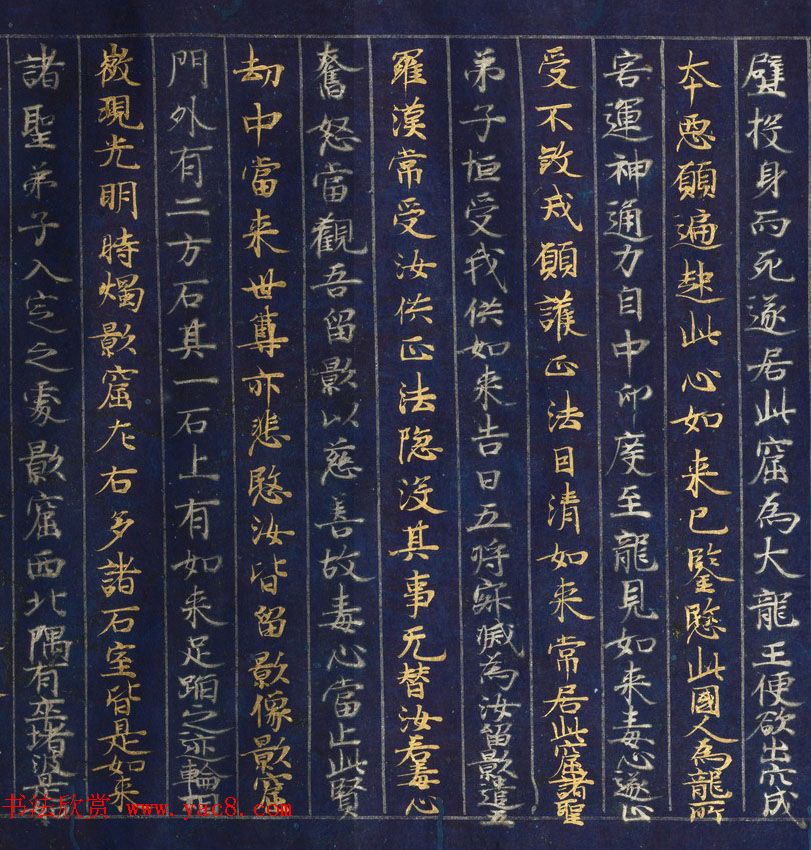 壁投身而死遂居此窟為大龍王便欲出穴成
本惡願遍起此心如来已鑒愍此國人為龍所
害運神通力自中印度至龍見如来毒心遂止
受不煞戒願護正法因清如来常居此窟諸聖
弟子恒受我供如来告曰吾將寂滅為汝留影遣五
羅漢常受汝供正法隐没其事无替汝若毒心
奮怒當觀吾留影以慈善故毒心當止此賢
劫中當来世尊亦悲愍汝皆留影像影窟
門外有二方石其一石上有如来足蹈之迹輪
微現光明時燭影窟左右多諸石室皆是如来
諸聖弟子入定之處影窟西北隅有窣堵波
书法欣赏 www.yac8.com